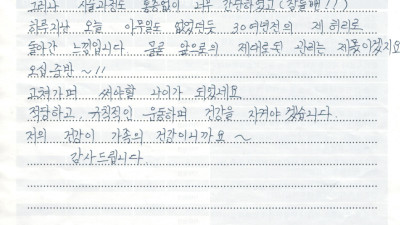 그러나 시술과정도 통증없이 너무 간단하였고 (잠들때!!)
하루지난 오늘 아무일도 없었던듯 30여년전의 제 허리로
돌아간 느낌입니다. 물론 앞으로의 제대로된 관리는 제몫이겠지요
오십중반 ~!!
고쳐가며 써야할 나이가 되었네요
적당하고, 규칙적인 운동하며 건강을 지켜야 겠습니다.
저의 건강이 가족의 건강이니까요 ~
감사드립니다